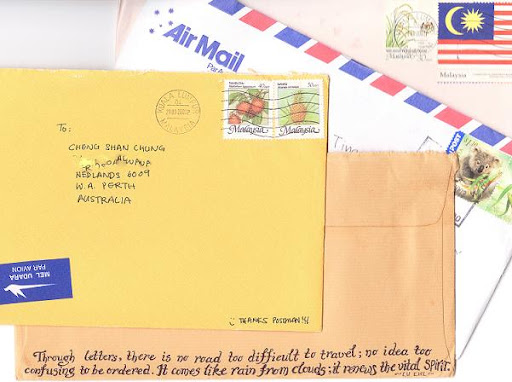 Air Mail
Par Av
Malaysia
Malaysia
KUALA LUMPUR
MALAYSIA
40 sen
50 sen
Malaysia
Malaysia
To:
CHONG SHAN CHUNG
NEDLANDS 6009
W.A. PERTH
AUSTRALIA
MEL UDARA
PAR AVION
THANKS POSTMAN!
Through letters, there is no road too difficult to travel; no idea too
confusing to be ordered. It comes like rain from clouds; it renews the vital spirit.